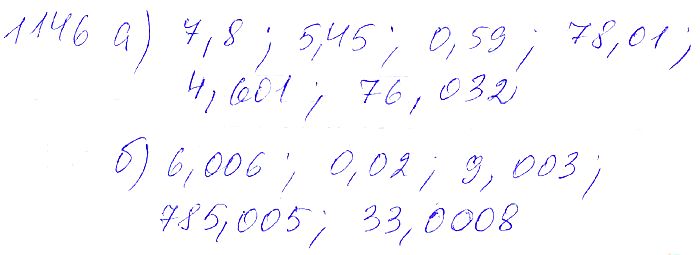 1146 а) 7,8 ; 5,45 ; 0,59 ; 78,01 ;
4,601 ; 76,032
б) 6,006 ; 0,02 ; 9,003 ;
785,005 ; 33,0008